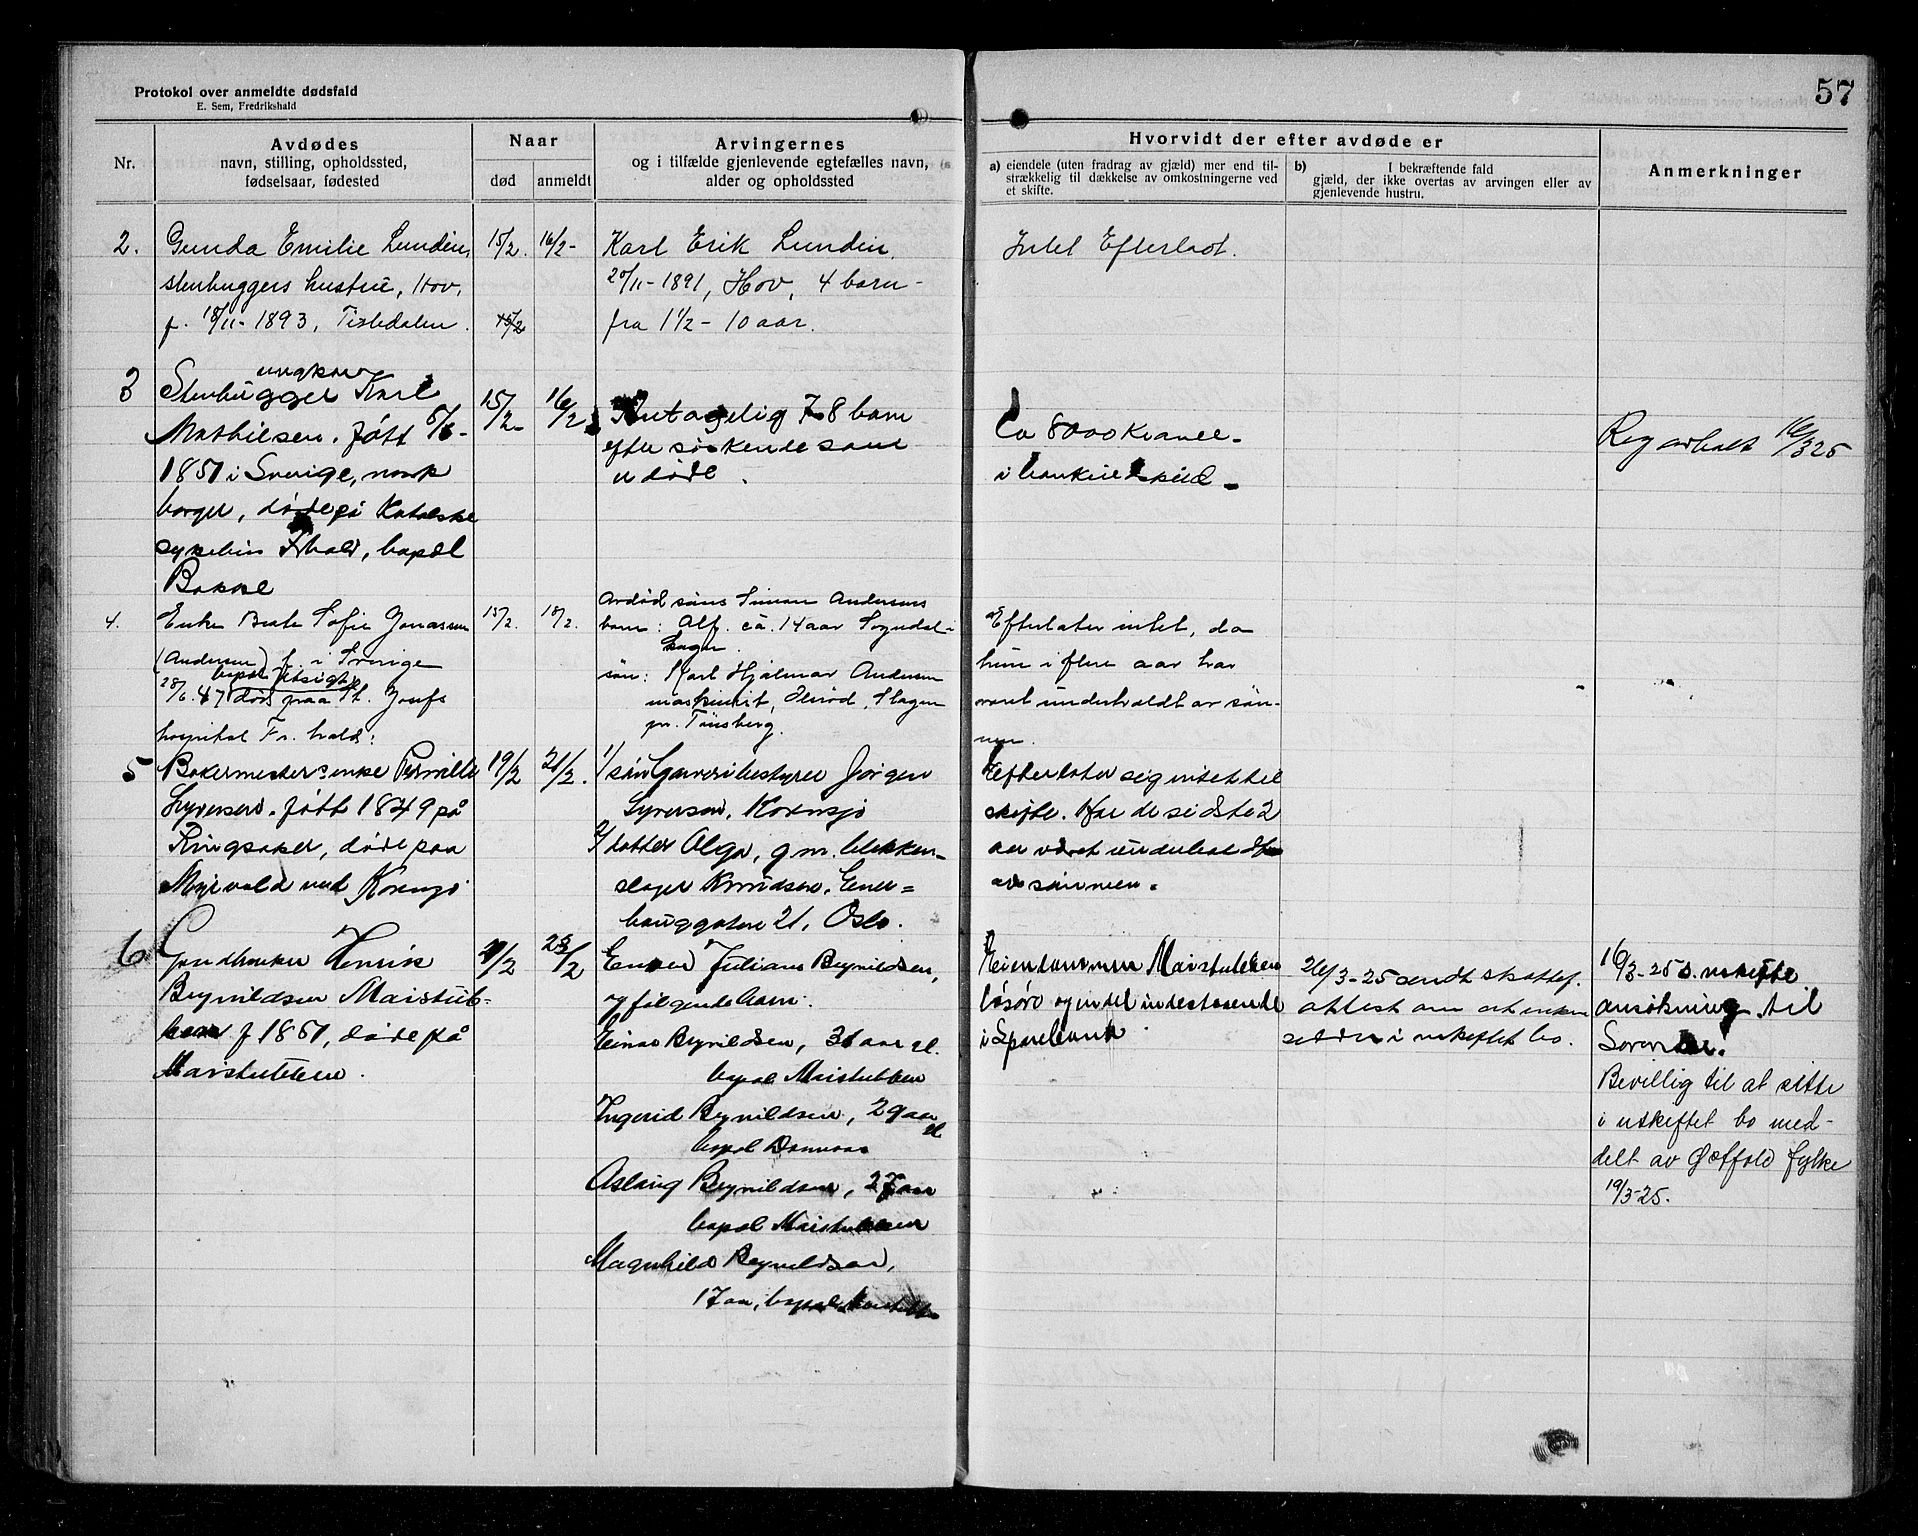 57
Protokol over anmeldte dødsfald
E. Sem, Fredrikshald
Nr.
Avdødes
navn, stilling, opholdssted,
fødselsaar, fødested
Naar
død
anmeldt
Arvingernes
og i tilfælde gjenlevende egtefælles navn,
alder og opholdssted
Hvorvidt der efter avdøde er
a) eiendele (uten fradrag av gjæld) mer end til-
strækkelig til dækkelse av omkostningerne ved
et skifte.
b) I bekræftende fald
gjæld, der ikke overtas av arvingen eller av
gjenlevende hustru.
Anmerkninger
2.
Gunda Emilie Lundin,
stenhuggers hustru, Hov,
f. 18/11-1893, Tistedalen.
15/2.
16/2-
Karl Erik Lundin,
20/11-1891, Hov, 4 barn
fra 1½-10 aar.
Intet Efterladt.
3
ungkar
Stenhugger Karl
Mathilsen. født
1851 i Sverige, norsk
borger, døde på Katolske
sykehus F.hald, bopæl
Bakke
15/2
16/2
Antagelig 7-8 barn
efter søskende som
er døde.
Ca 8000 kroner
i bankindskud.
16/3 25
4.
Enke Beate Sofie Jonassen
(Andersen) f. i Sverige
28/6.47 død paa St. Josefs
hospital Fr.hald:
15/2.
18/2.
Avdød søns Simon Andersens
barn: Alf. ca. 14 aar Sogndal i
søn: Karl Hjalmar Andersen
maskinist, Slagen
pr. Tønsberg.
Efterlater intet, da
hun i flere aar har
været underholdt av søn-
nen.
5
Bakermester enke Pernille
Syversen. født 1849 på
Ringsaker, døde paa
ved Kornsjø
19/2
21/2.
1/ søn Garveribestyrer Jørgen
Syversen, Kornsjø
2/ datter Olga, gm. blikken-
slager Knudsen,
21, Oslo.
Efterlater sig intet til
skifte. Har de sidste 2
aar været underholdt
av sønnen.
6
Gaardbruker Henrik
Brynildsen Maistub-
f 1851, døde på
Maistubben.
23/2
Enken Juliane Brynildsen,
og følgende barn:
Einar Brynildsen, 31 aar
bopæl Maistubben
Ingerid Brynildsen, 29 aar
bopæl
Aslaug Brynildsen, 27 aar
bopæl Maistubben
Magnhild Brynildsen,
17 aar, bopæl Maistubben
Eiendommen Maistubben
løsøre og endel indestaaende
i Sparebank
26/3-25 sendt skattef.
attest om at enken
sidder i uskiftet bo.
16/3-25 s. uskifte
ansøkning til
Bevillig til at sitte
i uskiftet bo med-
delt av Østfold fylke
19/3-25.